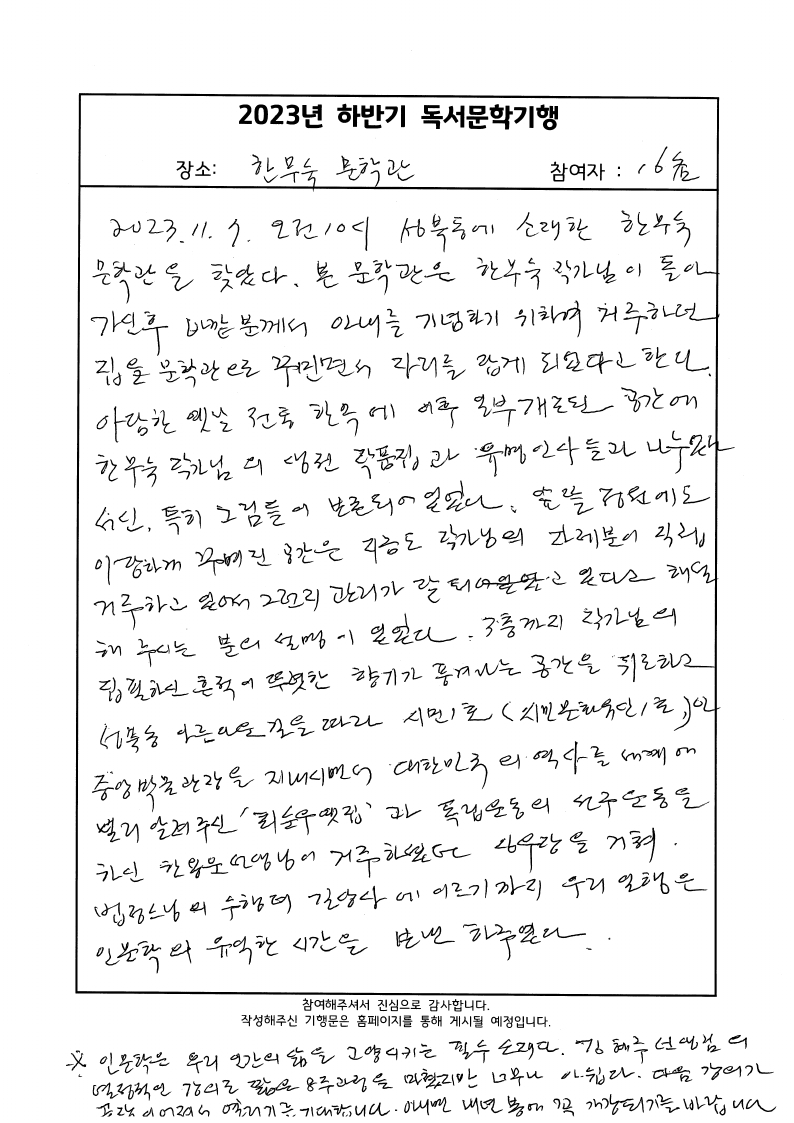 2023년 하반기 독서문학기행
장소: 한무숙 문학관 참여자 :
2023. 11. 7. 오전10시 성북동에 소재한 한무숙
문학관을 찾았다. 본 문학관은 한무숙 작가님이 돌아
가신후 바깥분께서 아내를 기념하기 위하여 거주하던
집을 문학관으로 꾸미면서 자리를 잡게 되었다고 한다.
아담한 옛날 전통 한옥에 이후 일부개조된 공간에
한무숙 작가님의 생전 작품집과 유명인사들과 나누었던
서신, 특히 그림들이 보존되어 있었다. 앞뜰 정원에도
아담하게 꾸며진 공간은 지금도 작가님의 자제분이 직접
거주하고 있어서 그런지 관리가 잘 되고 있다고 해설
해 주시는 분의 설명이 있었다. 3층까지 작가님의
집필하신 흔적이 뚜렷한 향기가 풍겨나는 공간을 뒤로하고
성북동 아름다운 길을 따라 시민1호 (시민문화유산1호,)인
중앙박물관장을 지내시면서 대한민국의 역사를 세계에
널리 알려주신 '최순우옛집' 과 독립운동의 선구운동을
하신 한용운선생님이 거주하셨던 심우장을 거쳐.
법정스님의 수행처 길상사에 이르기까지 우리 일행은
인문학의 유익한 시간을 보낸 하루였다.
참여해주셔서 진심으로 감사합니다.
작성해주신 기행문은 홈페이지를 통해 게시될 예정입니다.
※ 인문학은 우리 인간의 삶을 고양시키는 필수 소재다. 강 해주 선생님의
열정적인 강의로 짧은 8주과정을 마쳤지만 너무나 아쉽다. 다음 강의가
곧장 이어져서 열리기를 기대합니다. 아니면 내년 봄에 꼭 개강되기를 바랍니다